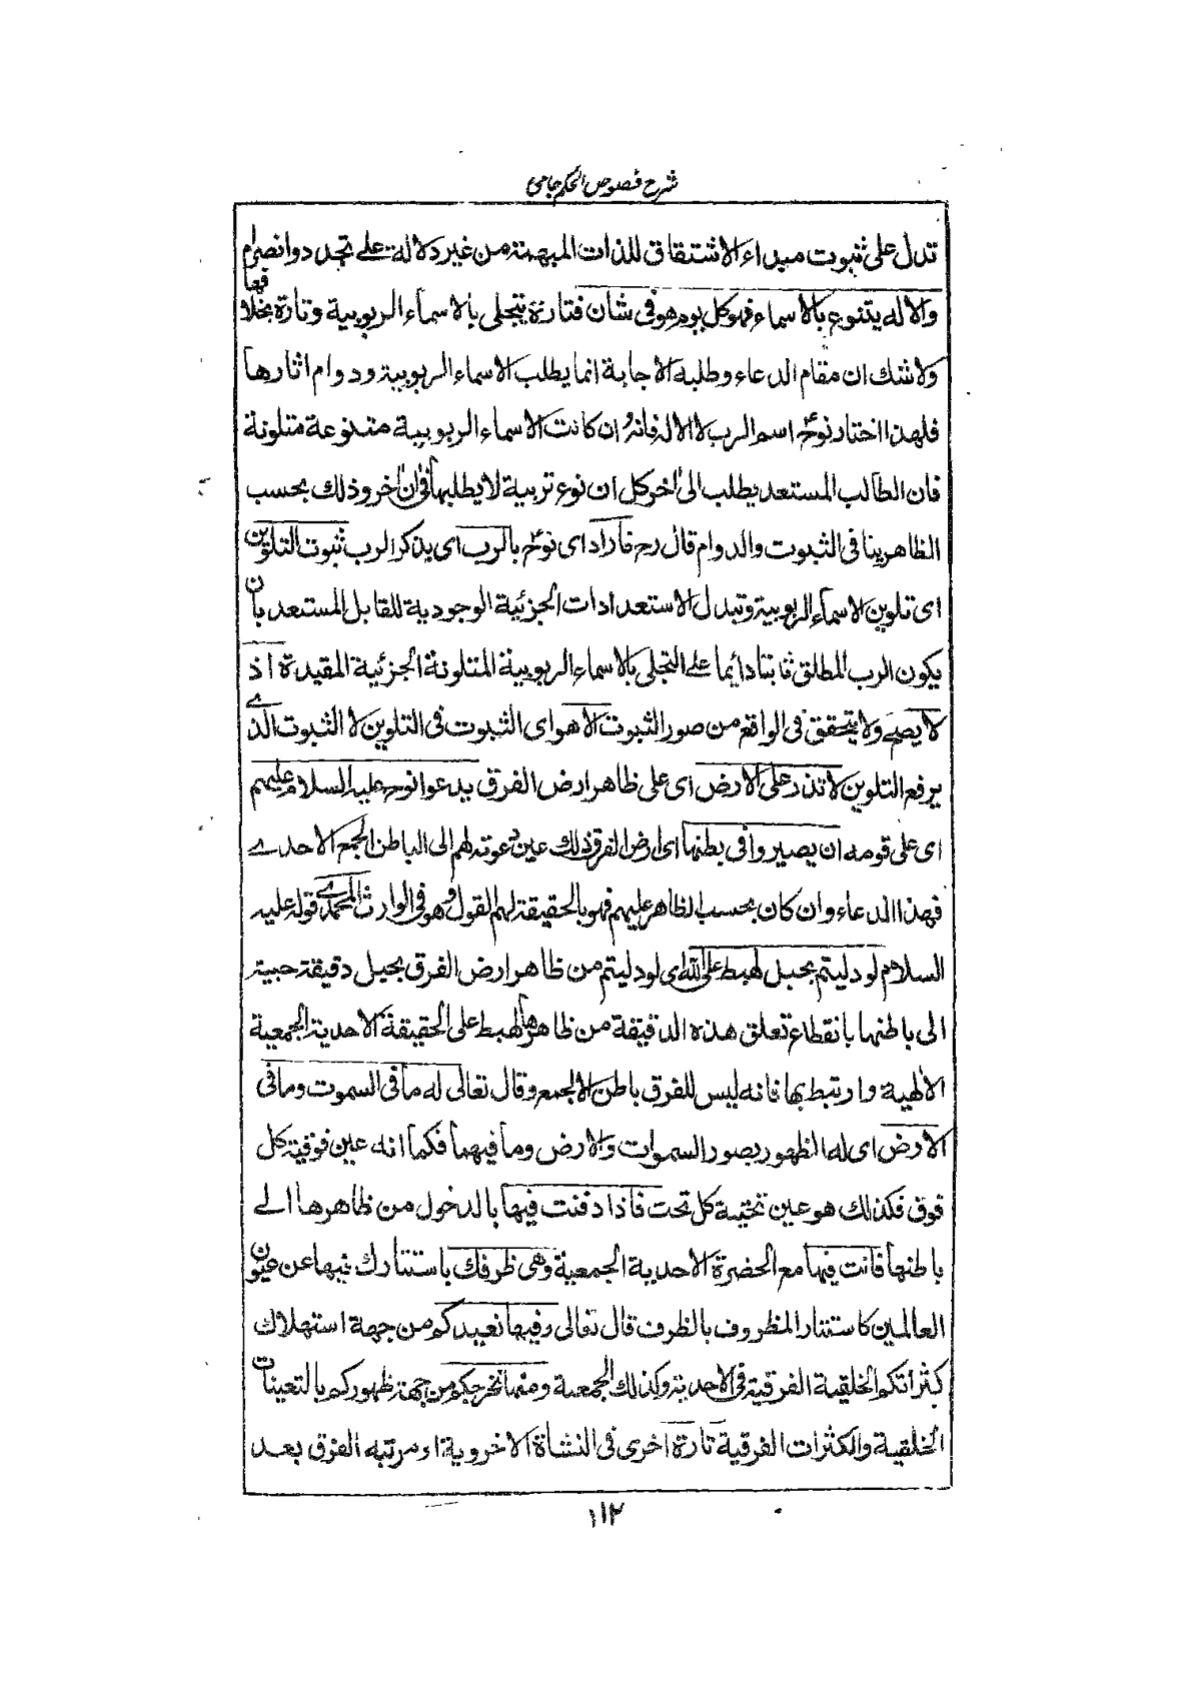 شرح فصوص الحكم جامی
تدل علی ثبوت مبداء الاشتقاق للذات المبهمة من غير دلالة علے تجدد وانصرام
والاله يتنوع بالاسماء فهو كل يوم هو فی شان فتارة يتجلی بالاسماء الربوبية وتارة بخلافها
ولاشك ان مقام الدعاء وطلبه الاجابة انما يطلب الاسماء الربوبية ودوام اثارها
فلهذا اختار نوح اسم الرب لا الاله فانه وان كانت الاسماء الربوبية متنوعة متلونة
فان الطالب المستعد يطلب الی اخر كل ان نوع تربية لا يطلبها فی ان اخر وذلك بحسب
الظاهر ينافی الثبوت والدوام قال رح فاراد ای نوح بالرب ای يذكر الرب ثبوت التلوين
ای تلوين الاسماء الربوبية وتبدل الاستعدادات الجزئية الوجودية للقابل المستعد بان
يكون الرب المطلق ثابتا دائما علے التجلی بالاسماء الربوبية المتلونة الجزئية المقيدة اذ
لا يصح ولا يتحقق فی الواقع من صور الثبوت الا هو ای الثبوت فی التلوين لا الثبوت الذے
يرفع التلوين لا تذر علی الارض ای علی ظاهر ارض الفرق يدعوا نوح عليه السلام عليهم
ای علی قومه ان يصيروا فی بطنها ای ارض الفرق وذلك عين دعوته لهم الی الباطن الجمع الاحدے
فهذا الدعاء وان كان بحسب الظاهر عليهم فهو بالحقيقة لهم القول وهو فی الوارث المحمدے قوله عليه
السلام لو دليتم بحبل لهبط علی الله ای لو دليتم من ظاهر ارض الفرق بحبل دقيقة حبية
الی باطنها بانقطاع تعلق هذه الدقيقة من ظاهرها لهبط علی الحقيقة الاحدية الجمعية
الالهية وارتبط بها فانه ليس للفرق باطن الا الجمع وقال تعالی له ما فی السموت وما فی
الارض ای له الظهور بصور السموات والارض وما فيهما فكما انه عين فوقية كل
فوق فكذلك هو عين تحتية كل تحت فاذا دفنت فيها بالدخول من ظاهرها الے
باطنها فانت فيها مع الحضرة الاحدية الجمعية وهی ظرفك باستتارك فيها عن عيون
العالمين كاستتار المظروف بالظرف قال تعالی وفيها نعيدكم من جهة استهلاك
كثراتكم الخلقية الفرقية فی الاحدية وكذلك الجمعية ومنها نخرجكم من جهة ظهوركم بالتعينات
الخلقية والكثرات الفرقية تارة اخری فی النشاة الاخروية او مرتبه الفرق بعد
۱۱۲